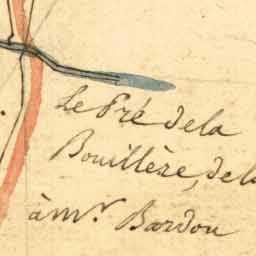 Le Pré dela
Bouillère, dela
à Mr. Bardou